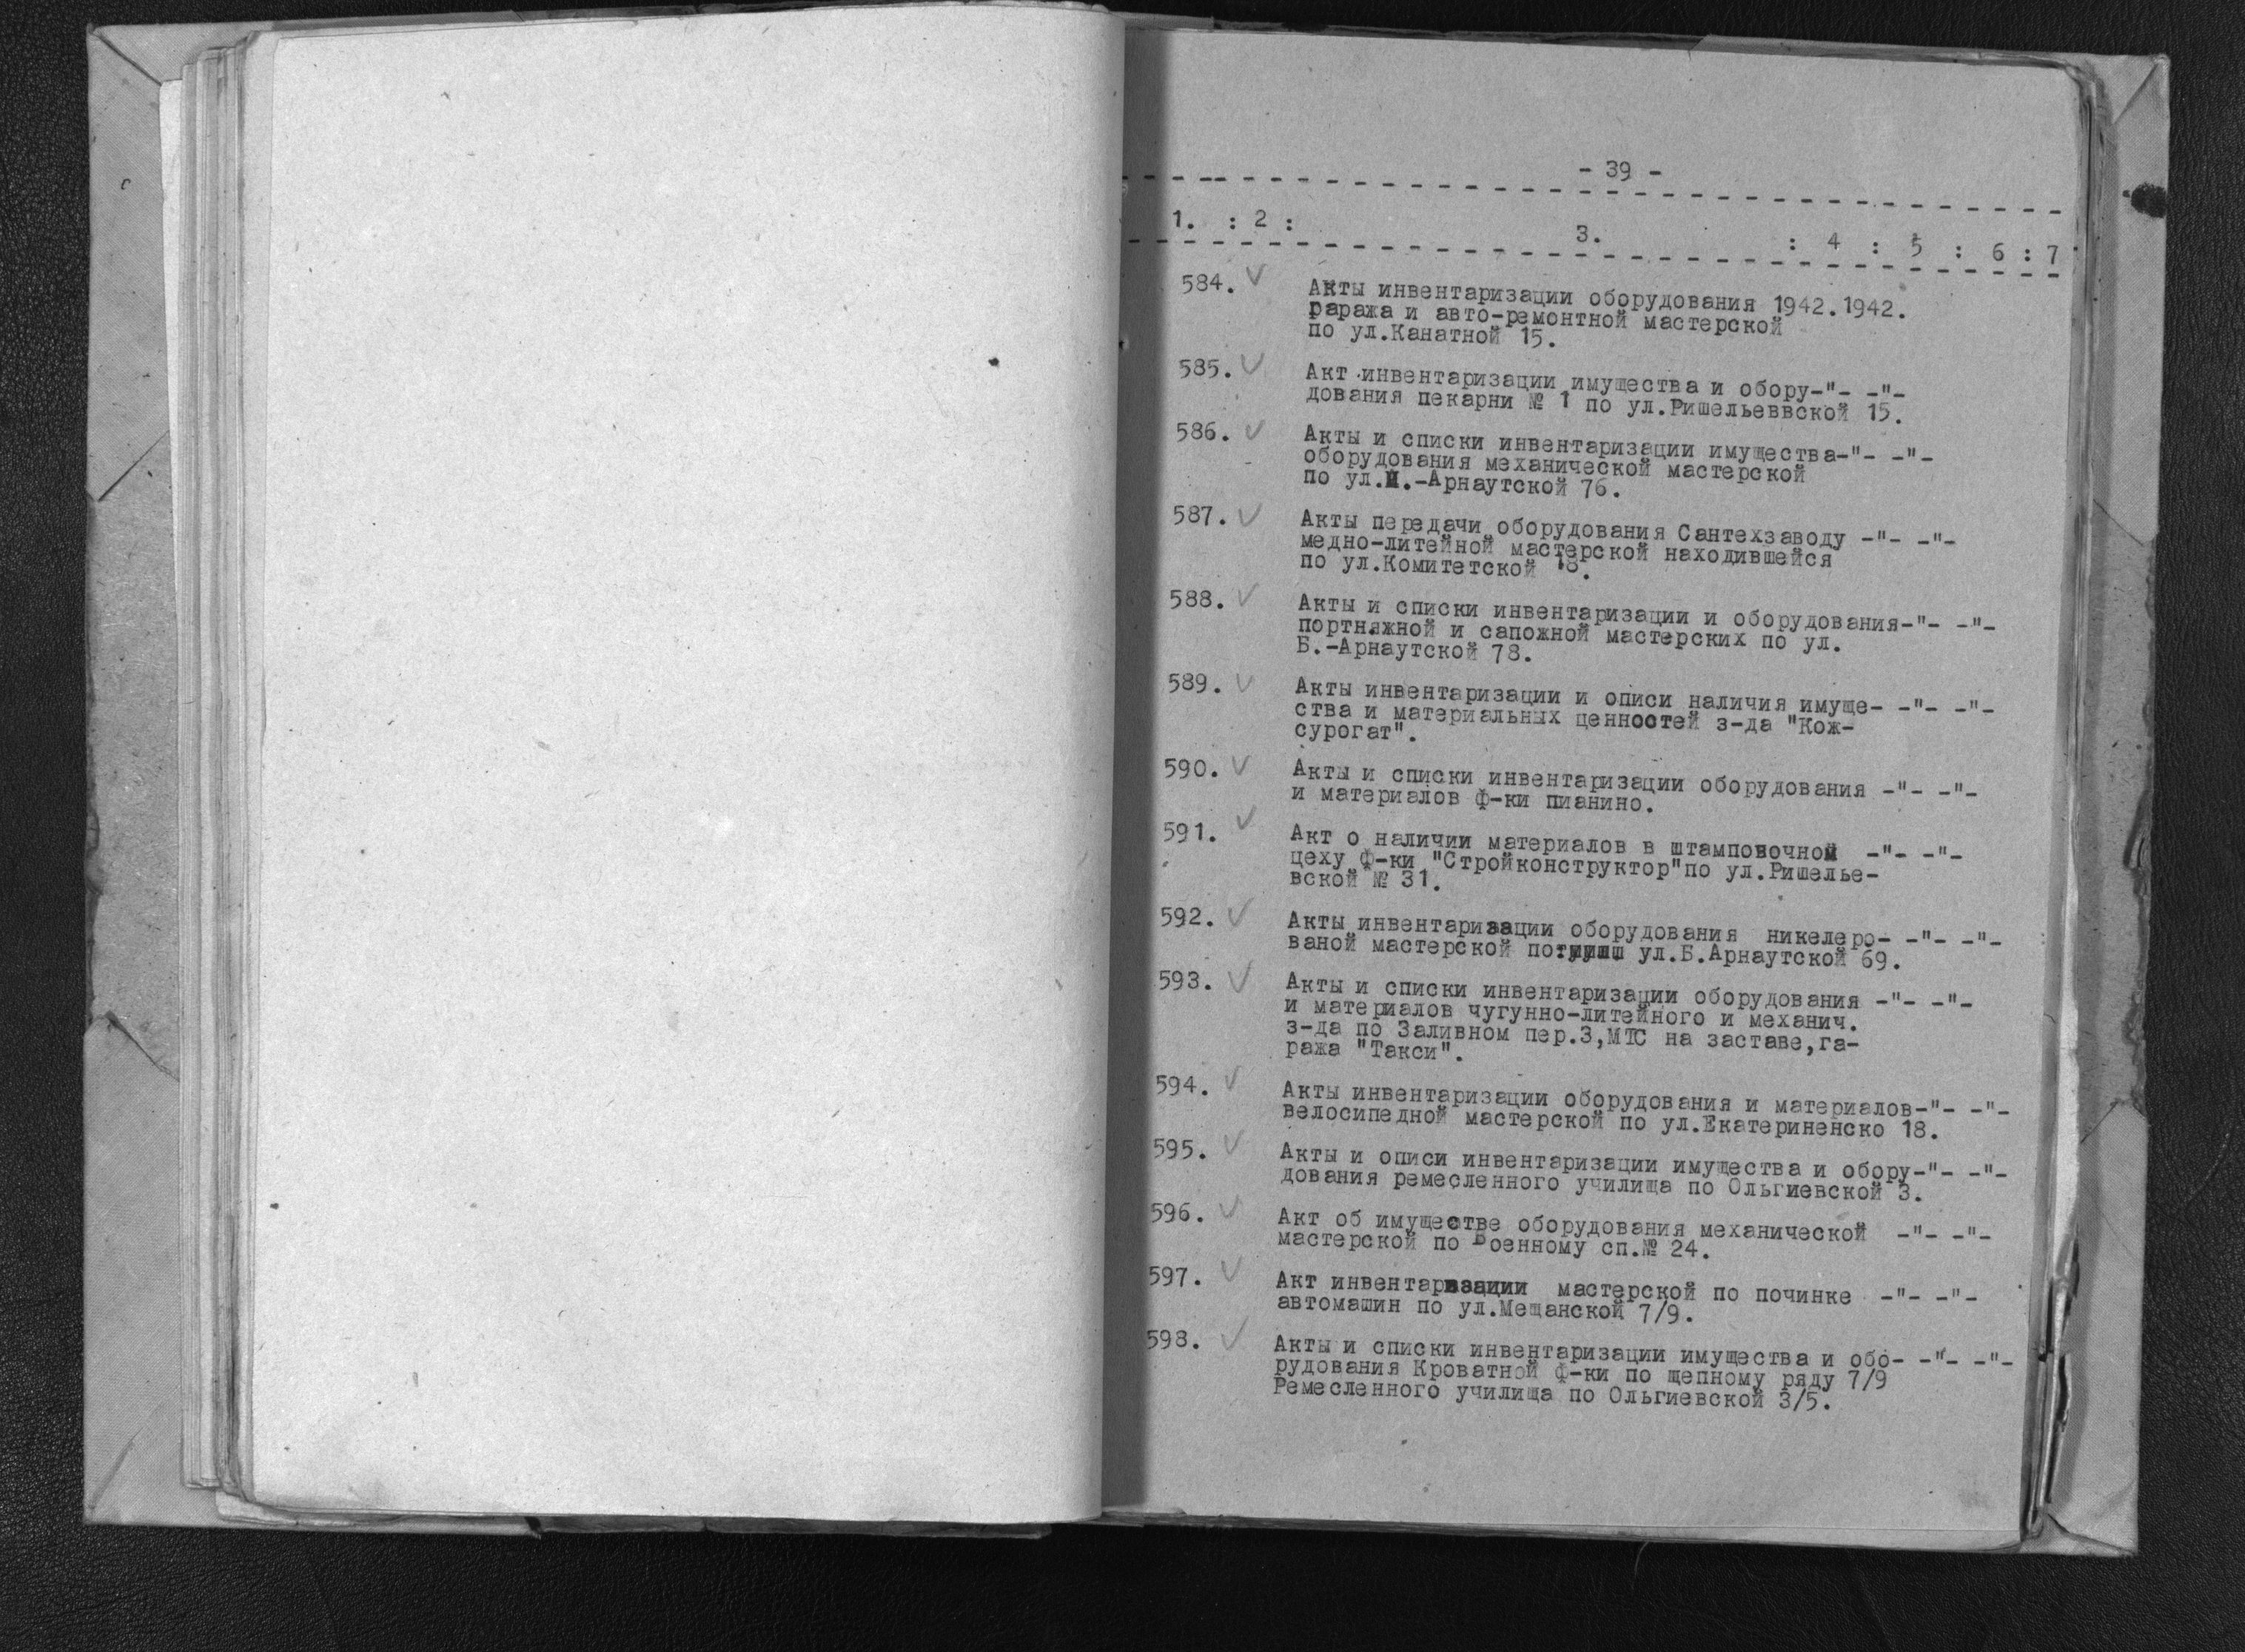 - 39 -
1. : 2 : 3. : 4 : 5 : 6 : 7
584. Акты инвентаризации оборудования 1942.1942.
раража и авто-ремонтной мастерской
по ул.Канатной 15.
585. Акт инвентаризации имущества и обору-"- -"-
дования пекарни № 1 по ул.Ришельеввской 15.
586. Акты и списки инвентаризации имущества-"- -"-
оборудования механической мастерской
по ул.М.-Арнаутской 76.
587. Акты передачи оборудования Сантехзаводу -"- -"-
медно-литейной мастерской находившейся
по ул.Комитетской 18.
588. Акты и списки инвентаризации и оборудования-"- -"-
портняжной и сапожной мастерских по ул.
Б.-Арнаутской 78.
589. Акты инвентаризации и описи наличия имуще- -"- -"-
ства и материальных ценностей з-да "Кож-
сурогат".
590. Акты и списки инвентаризации оборудования -"- -"-
и материалов ф-ки пианино.
591. Акт о наличии материалов в штамповочной -"- -"-
цеху ф-ки "Стройконструктор"по ул.Ришелье-
вской № 31.
592. Акты инвентаризации оборудования никелеро- -"- -"-
ваной мастерской по ул.Б.Арнаутской 69.
593. Акты и списки инвентаризации оборудования -"- -"-
и материалов чугунно-литейного и механич.
з-да по Заливном пер.3,МТС на заставе,га-
ража "Такси".
594. Акты инвентаризации оборудования и материалов-"- -"-
велосипедной мастерской по ул.Екатериненско 18.
595. Акты и описи инвентаризации имущества и обору-"- -"-
дования ремесленного училища по Ольгиевской 3.
596. Акт об имуществе оборудования механической -"- -"-
мастерской по Военному сп.№ 24.
597. Акт инвентаризации мастерской по починке -"- -"-
автомашин по ул.Мещанской 7/9.
598. Акты и списки инвентаризации имущества и обо- -"- -"-
рудования Кроватной ф-ки по щепному ряду 7/9
Ремесленного училища по Ольгиевской 3/5.